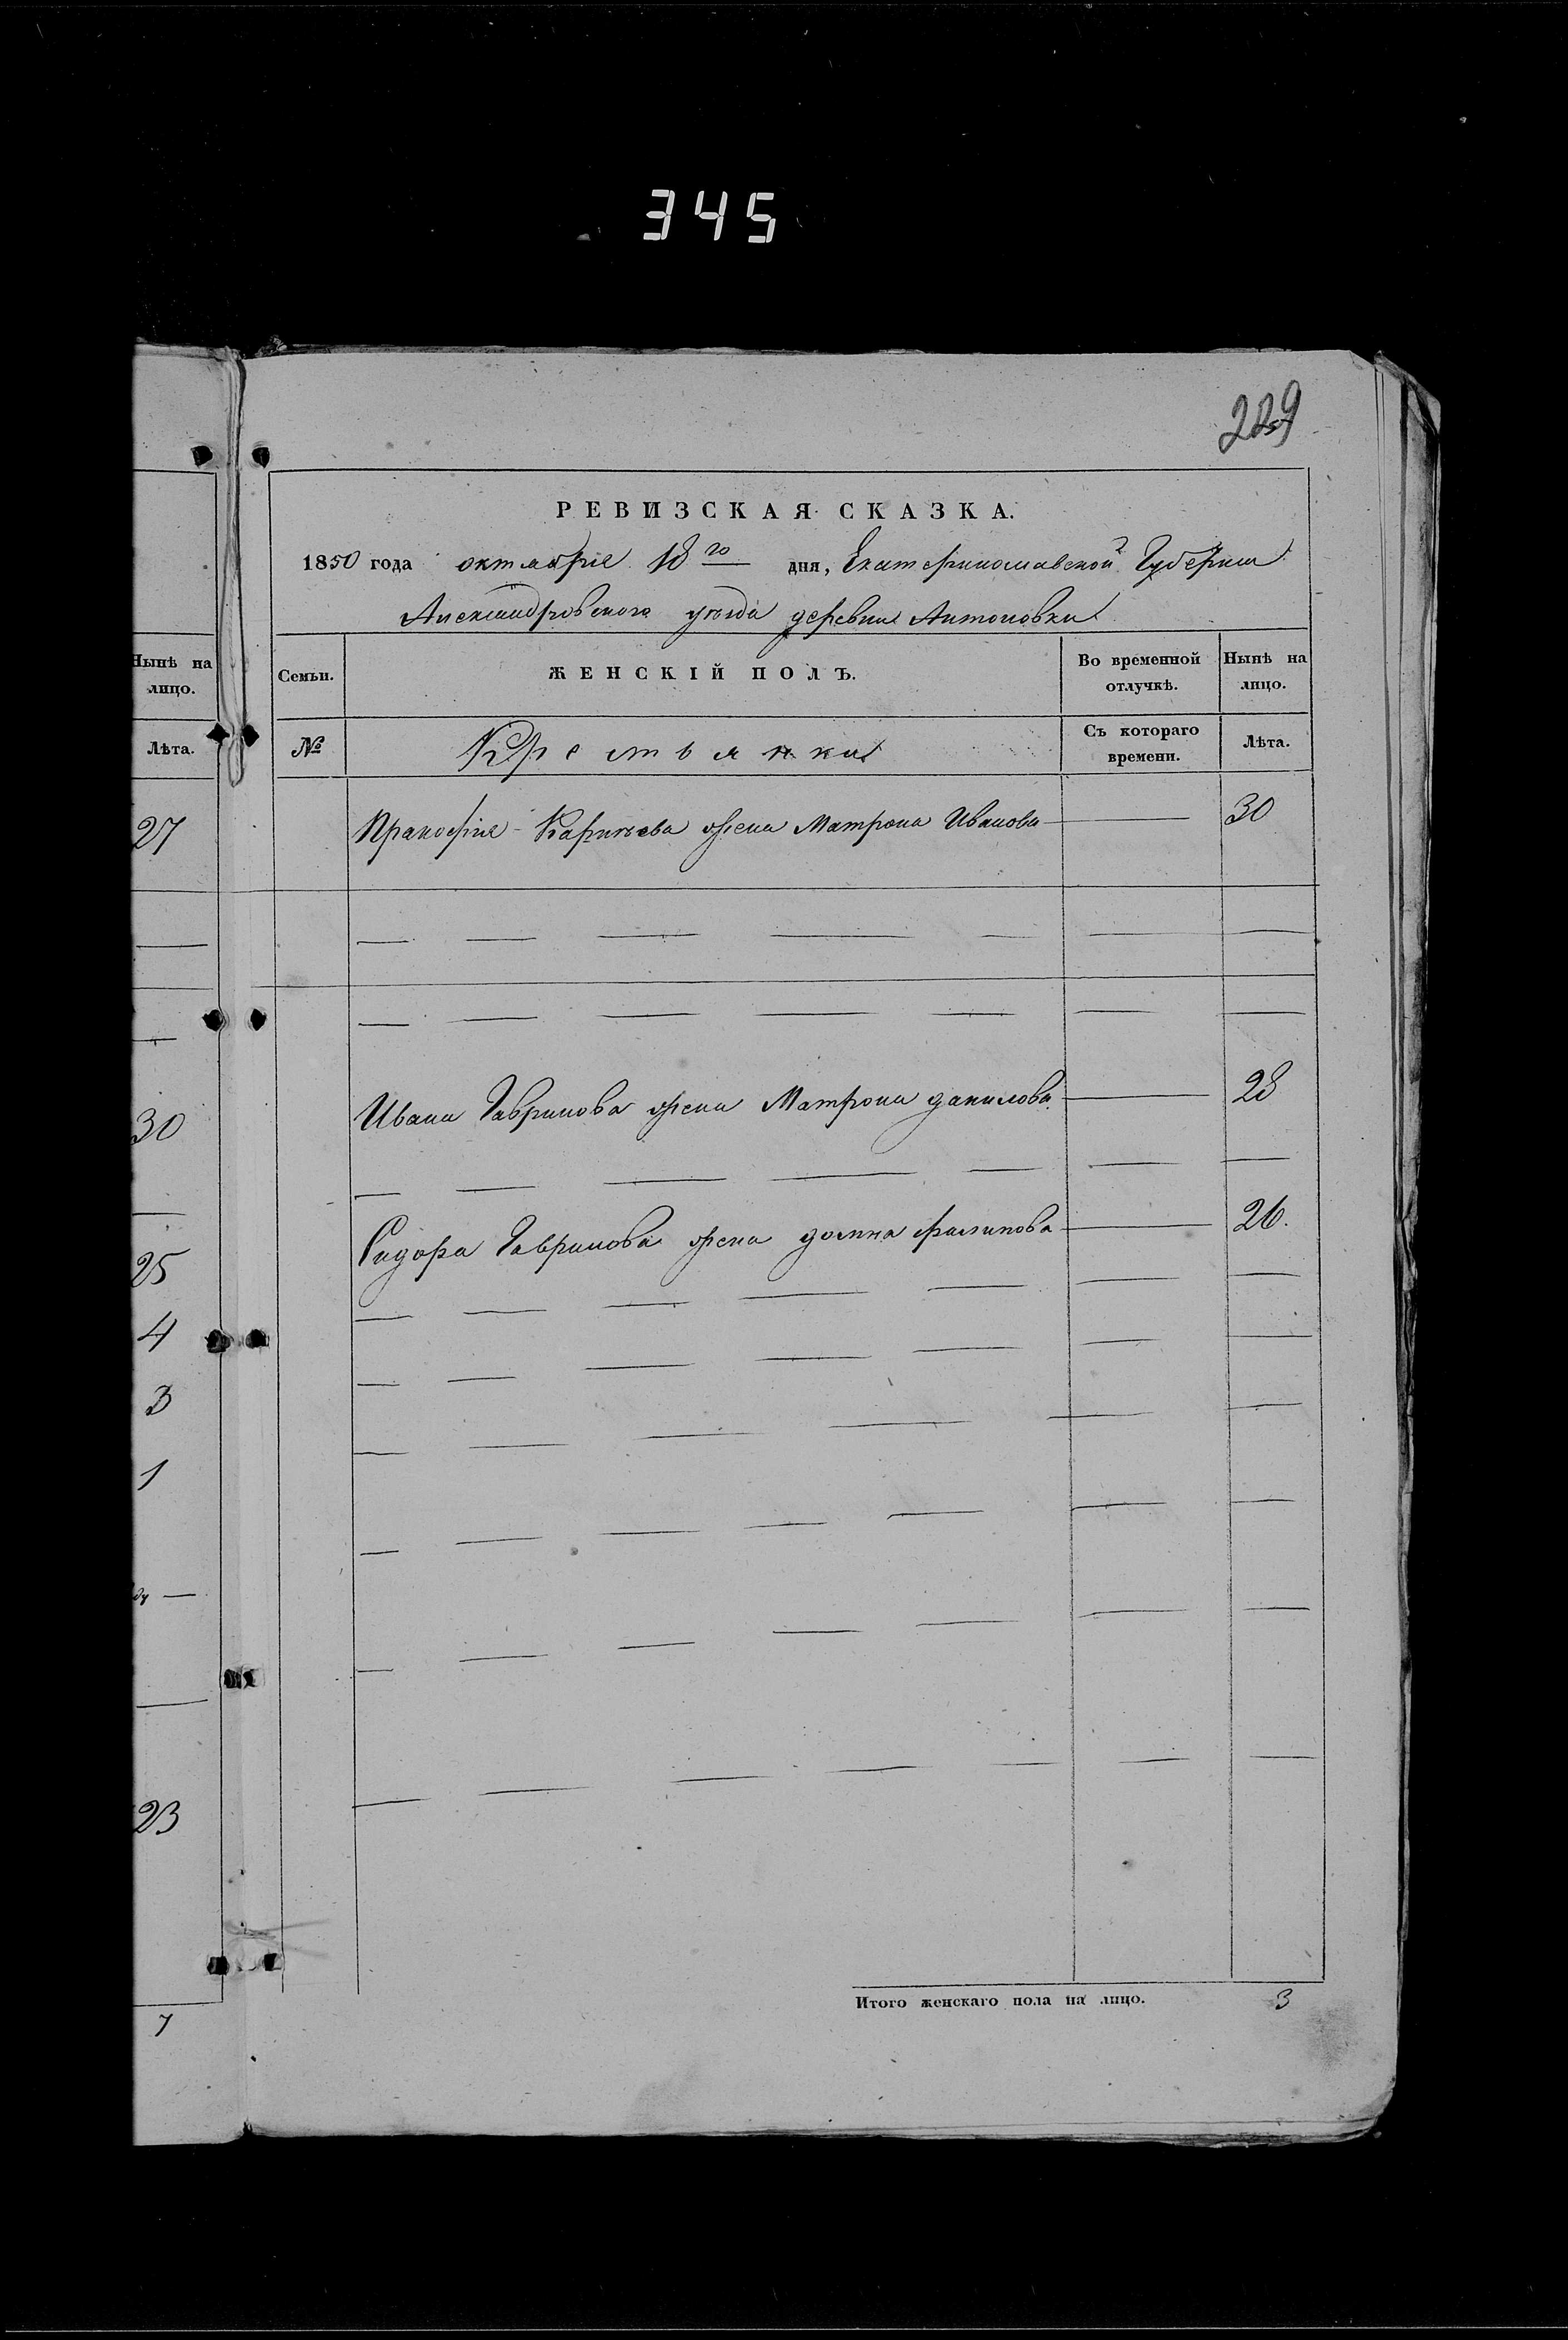 345
229
РЕВИЗСКАЯ СКАЗКА.
1850 года октября 18го дня, Екатеринославской Губернии
Александровского уѣзда деревни Антоновки
Нынѣ на лицо.
Семьи.
ЖЕНСКІЙ ПОЛЪ.
Во временной отлучкѣ.
Нынѣ на лицо.
Лѣта.
№
Крестьянки
Съ котораго времени.
Лѣта.
27
Пракофія Карпѣева жена Матрона Иванова 30
30
Ивана Гаврилова жена Матрона данилова 28
25
Сидора Гаврилова жена домна филипова 26.
4
3
1
23
Итого женскаго пола на лицо. 3
7